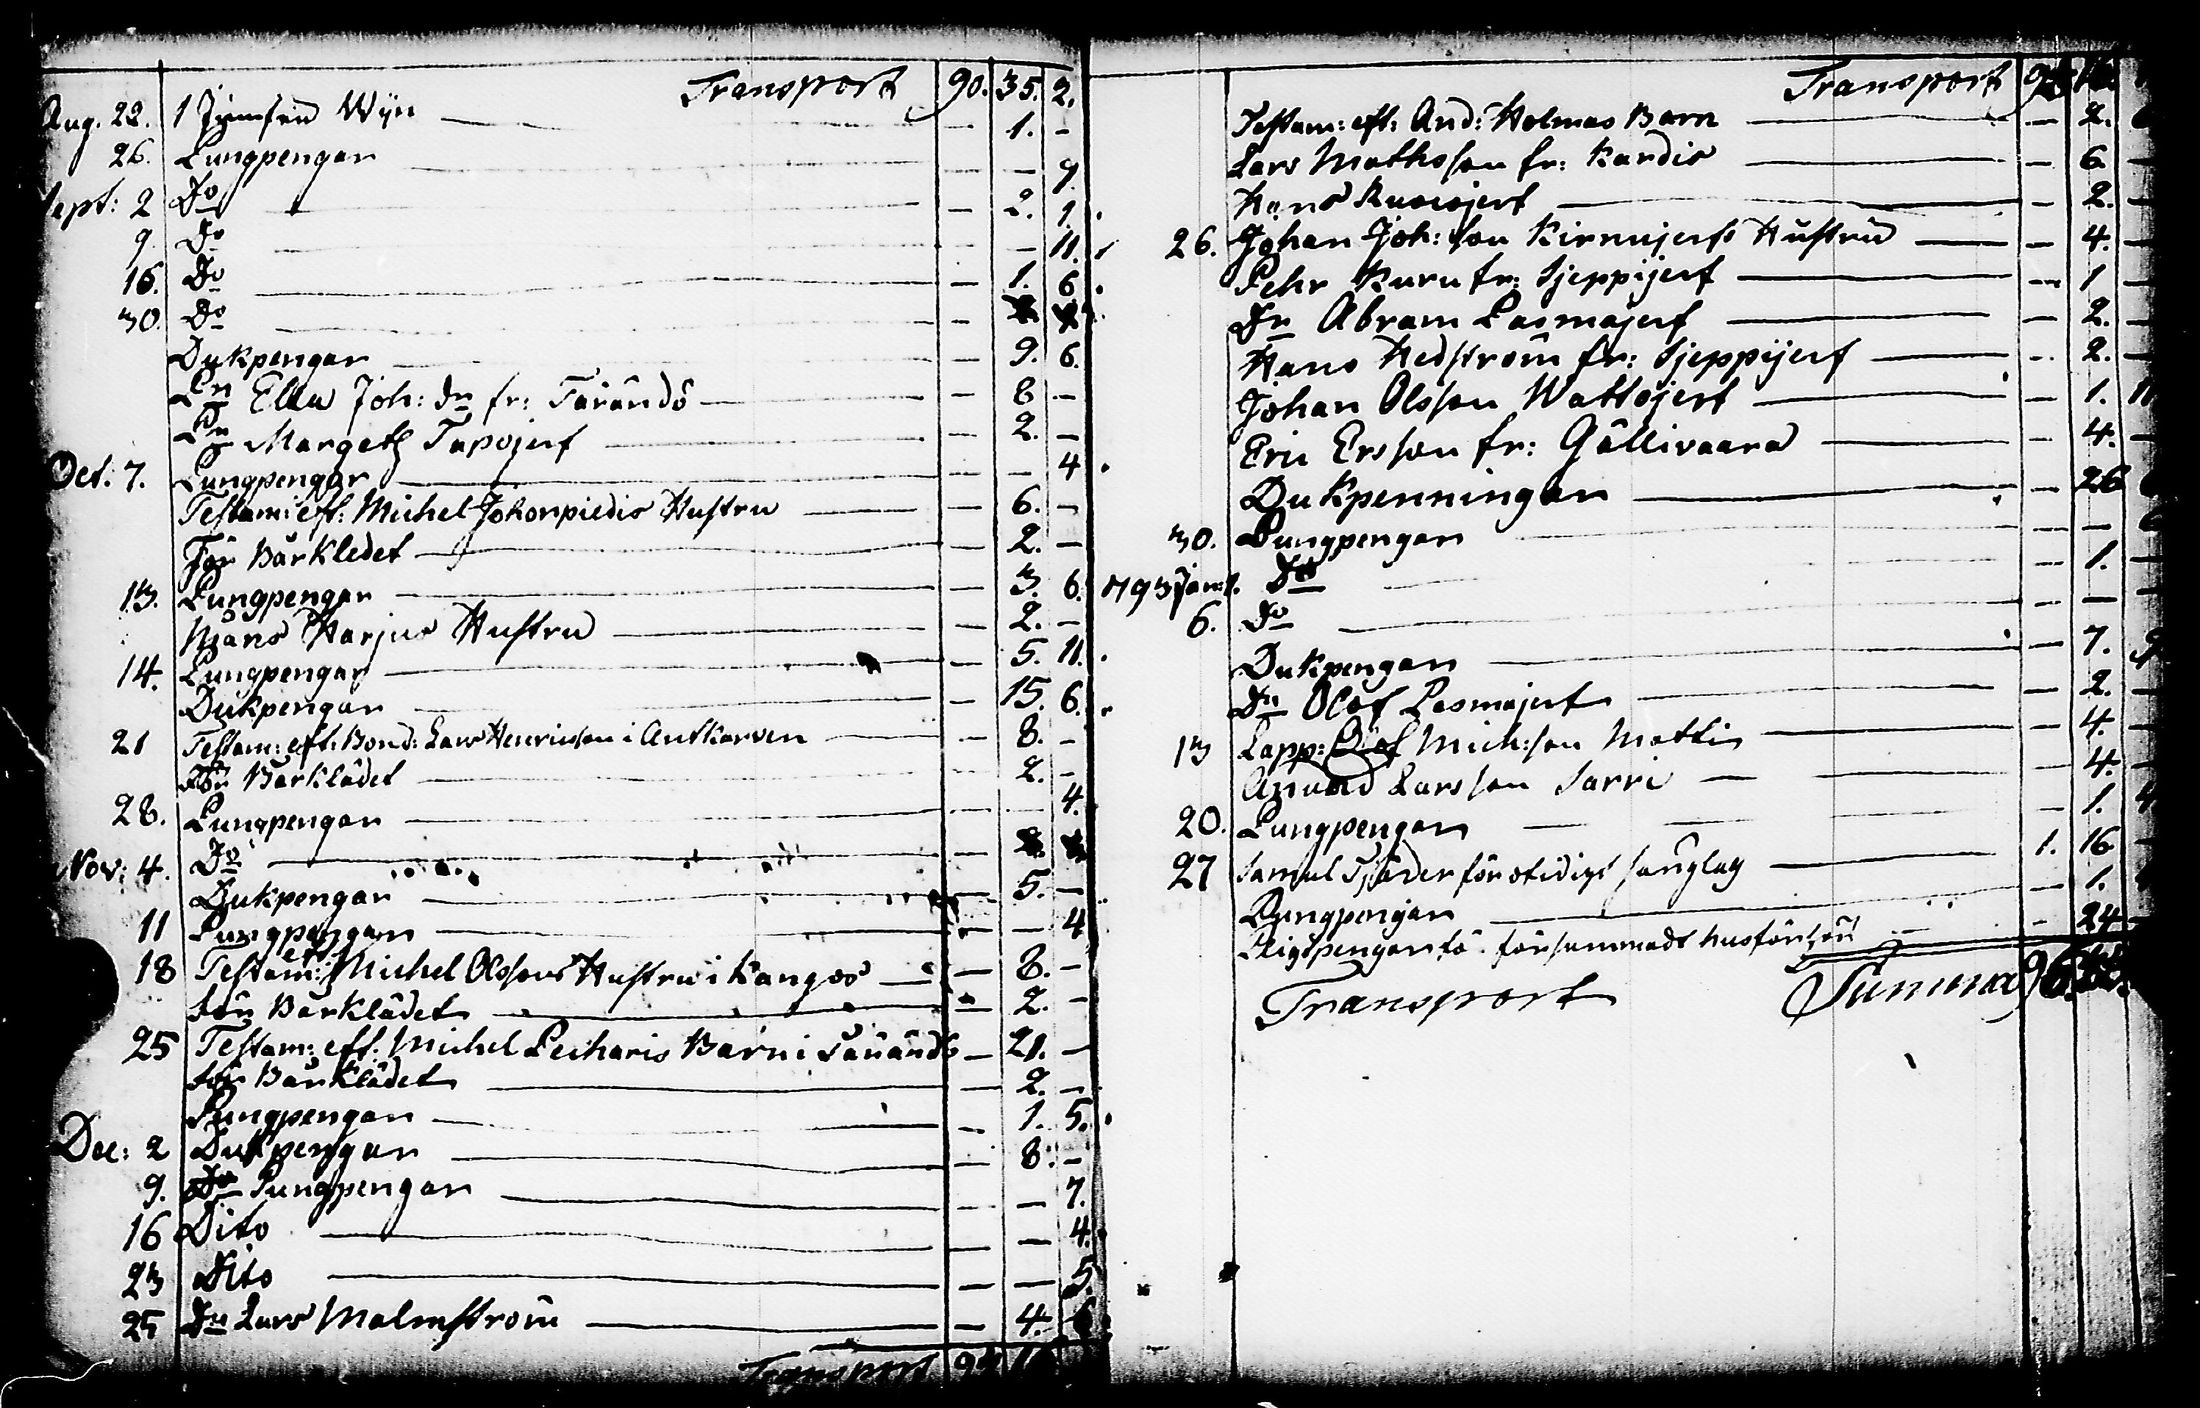 Transport 90. 35. 2.
Aug. 22. 1 Wijn — 1. –
26. Pungpengar — — 9.
Sept: 2 Do — 2. 1.
9. Do — — 11.
16. Do — 1. 6.
30. Do —
Dukpengar — 9. 6.
En Ella Joh: dr fr: Tärändö — 8 –
En Margeth Tapojerf — 2. –
Oct. 7. Pungpengar — — 4
Testam: eft: Michel Johonpiedis Hustru — 6. –
För Bårkledet — 2. –
13. Pungpengar — 3. 6.
Måns Harjus Hustru — 2. –
14. Pungpengar — 5. 11.
Dukpengar — 15. 6.
21 Testam: eft: Bond: Lars Henricsson i — 8. –
För Bårklädet — 2. –
28. Pungpengar — — 4.
Nov: 4. Do —
Dukpengar — 5. –
11 Pungpengar — — 4
18 Testam: eft: Michel Olssons Hustru i Kangos — 8. –
för Bårklädet — 2. –
25 Testam: eft: Michel Barn i — 21. –
för Bårklädet — 2. –
Pungpengar — 1. 5.
Dec: 2 Dukpengar — 8. –
9. Pungpengar — — 7.
16 Dito — — 4.
23 Dito — — 5
25 Lars Malmström — 4. 6
Transport
Transport
Testam: eft: And: Holmas Barn — 2.
Lars Mathsson fr: Kardis — 6 –
Hans — 2. –
26. Johan Joh: son Hustru — 4. –
Pehr Kuru fr: Sjeppijerf — 1 –
Abram Lasmajerf — 2. –
Hans Hedström fr: Sjeppijerf — 2. –
Johan Olsson — 1. 11
Eric Ersson fr: Gällivaara — 4. –
Dukpenningar — 26
30. Pungpengar — — 6
1793 Jan: 1. Do — 1. –
6. Do — — –
Dukpengar — 7. 9
Olof Lasmajerf — 2. –
13 Lapp: Olof Mich:son Matti — 4. –
Amund Larsson Sarri — 4. –
20. Pungpengar — 1. 4
27 Samul för otidigt — 1. 16 –
Pungpengar — 1.
försummadt husförhör — 24
Transport Summa 96.